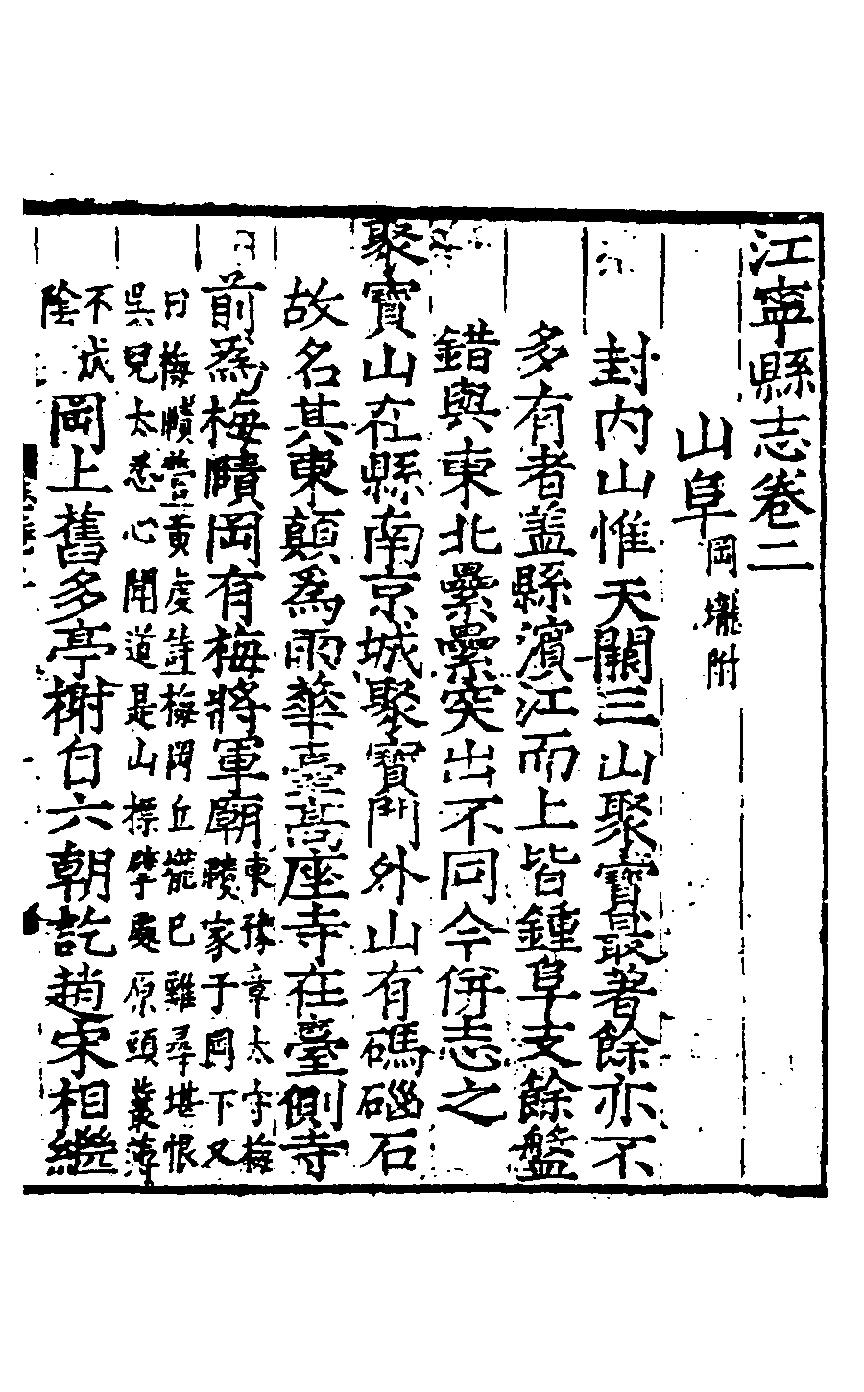 江寧縣志卷二
山阜岡壠附
封内山惟天闕三山聚寶最著餘亦不
多有者蓋縣濱江而上皆鍾阜支餘盤
錯與東北纍纍突出不同今併志之
聚寶山在縣南京城聚寶門外山有碼碯石
故名其東顛爲雨華臺高座寺在臺側寺
前爲梅賾岡有梅將軍廟東豫章太守梅
賾家于岡下又
曰梅賾營黃虔詩梅岡丘壠已難尋堪恨
吳兒太悉心聞道是山標處原頭叢薄
不成
陰岡上舊多亭榭自六朝訖趙宋相繼